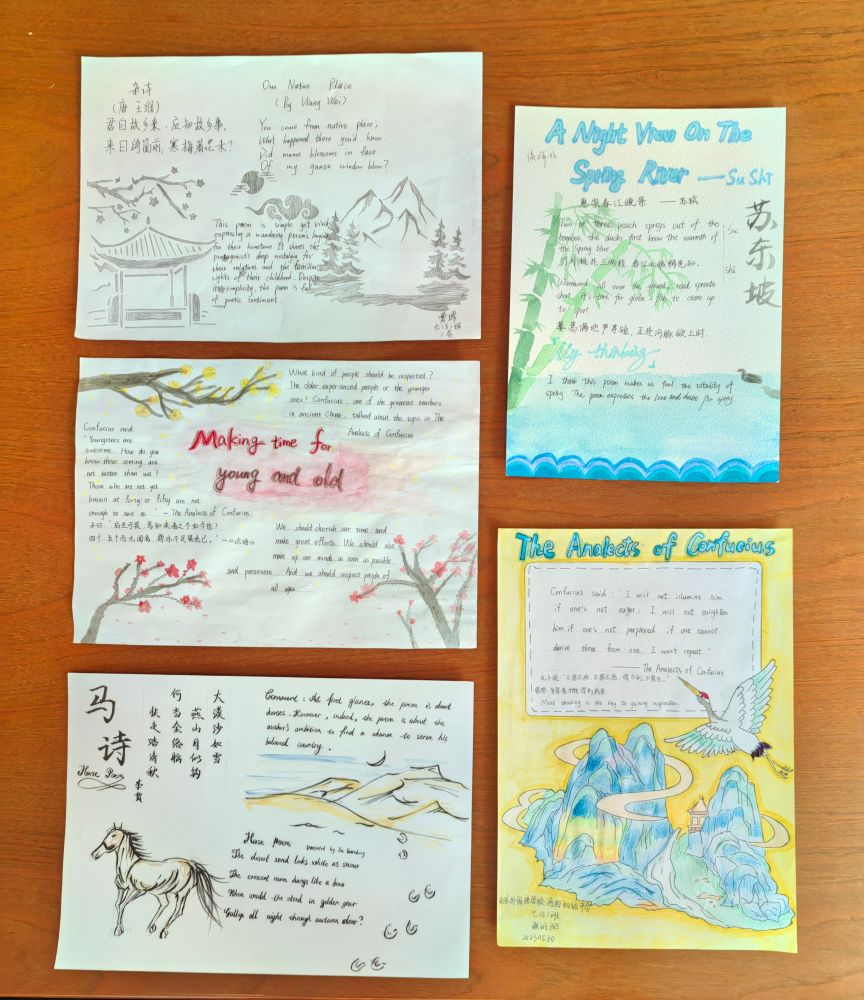 杂诗
(唐 王维)
君自故乡来,应知故乡事。
来日绮窗前,寒梅著花未?
Our Native Place
(By Wang Wei)
You come from native place;
What happened there you'd know.
Did mume blossoms in face
Of my gauze window blow?
This poem is simple yet vivid
expressing a wandering persons longing
for their hometown. It shows the
protagonist's deep nostalgia for
their relatives and the familiar
sights of their childhood. Despite
its simplicity, the poem is full
of poetic sentiment.
A Night View On The
Spring River —— Su Shi
惠崇春江晚景 ——苏轼
苏东坡
Su
Shi
Two or three peach sprays out of the
bamboo, the ducks first know the warmth of
the Spring blue
竹外桃花三两枝,春江水暖鸭先知。
short, it's time for globe fish to come up
to sport
蒌蒿满地芦芽短,正是河豚欲上时。
My thinking
I think this poem makes us feel the vitality of
spring. The poem expresses the love and desire for spring
What kind of people should be respected?
The older experienced people or the younger
ones? Confucius, one of the greatest teachers
in ancient China, talked about the topic in The
Analects of Confucius.
Making time for
young and old
Confucius said:
"Youngsters are
awesome. How do you
know those coming are
not better than we?
Those who are not yet
known at forty or fifty are not
enough to awe us." - The Analects of Confucius
子曰:"后生可畏,焉知来者之不如今也?
四十、五十而无闻焉,斯亦不足畏也已。"—《论语》
We should cherish our time and
make great efforts. We should also
make up our minds as soon as possible
and persevere. And we should respect people of
all ages
The Analects of Confucius
Confucius said: "I will not illumine him
if one's not eager; I will not enlighten
him if one's not perplexed; if one cannot
derive three from one, I won't repeat."
—— The Analects of Confucius
More thinking is the key to gaining inspiration.
七(5)班
20230530
马诗
Horse Poem
李贺
大漠沙如雪
燕山月似钩
何当金络脑
快走踏清秋
Comment: At first glance, the poem is about
horses. However, indeed, the poem is about the
author's ambition to find a chance to serve his
beloved country.
Horse Poem
The desert sand looks white as snow
The crescent moon hangs like a bow
When would the steed in golden gear
Gallop all night through autumn clear?